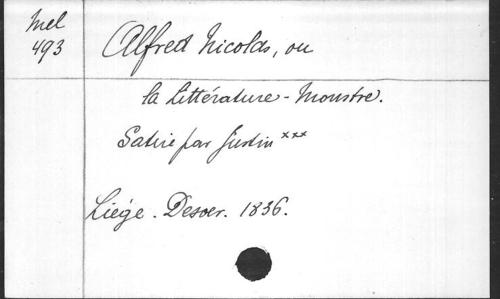 Mel
493
Alfred Nicolas, ou
la Littérature - Monstre.
Satire par Justin xxx
Liége. Desoer. 1836.